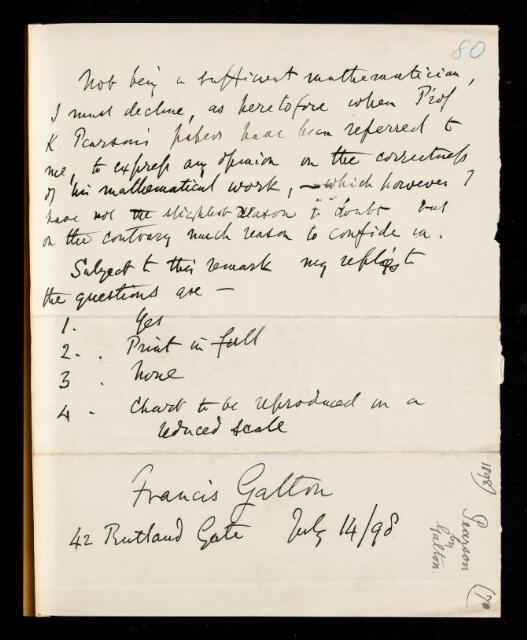 80
Not being a sufficient mathematician,
I must decline, as heretofore when Prof
K. Pearson's papers have been referred to
me, to express any opinion on the correctness
of his mathematical work, — which however I
have not the slightest reason to doubt but
on the contrary much reason to confide in.
Subject to this remark my replies to
the questions are —
1. Yes
2. Print in full
3. None
4. Chart to be reproduced on a
reduced scale
Francis Galton
42 Rutland Gate July 14/98
1898
Pearson
by
Galton.
(70